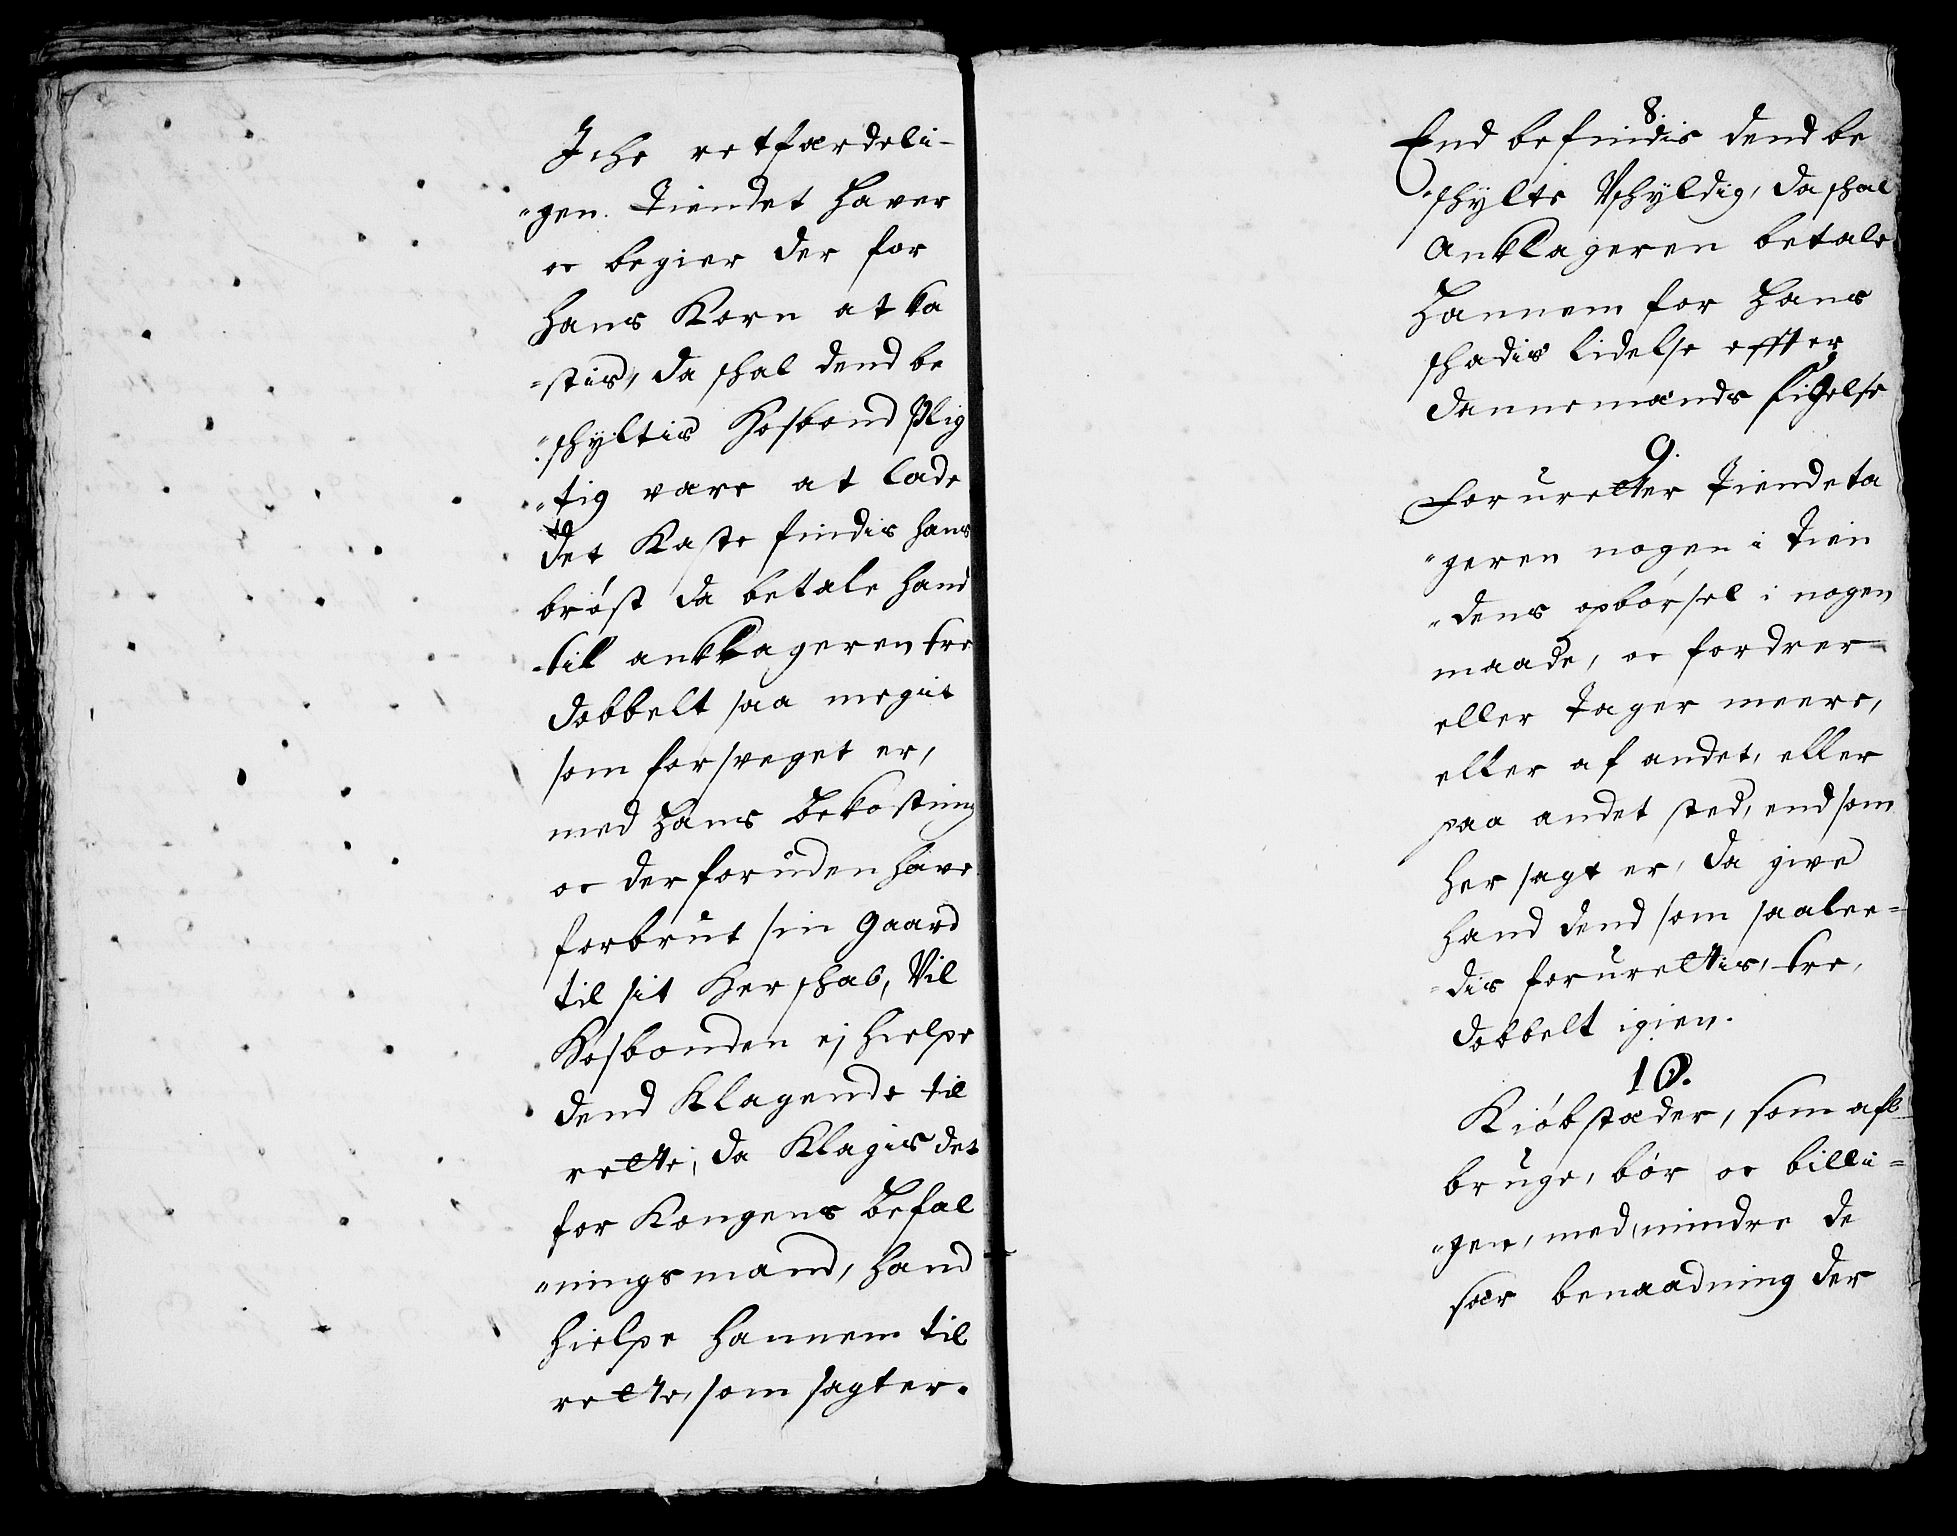 Iche retfærdeli-
"gen. Tiendet Haver
oc begier der for
hans Korn at ka
"stis, da shal dend be
"shyltis Hosbond Plig
"tig være at lade
det Kaste findis hans
brøst da betale hand
til anklageren tre
dobbelt saa megit
som forsveget er,
med Hans Bekostning
oc der foruden have
forbrut sin Gaard
til sit Hershab, Vil
Hosbonden ej Hielpe
dend Klagende til
rette, da Klagis det
for Kongens Befal
"ningsmand, Hand
hielpe hannem til
rette, som sagt er.
8.
End befindis dend be
"shylte Vshyldig, da shal
Anklageren betale
Hannem for Hans
shadis lidelse effter
Dannemænds sigelse
9.
Foruretter Tiendeta
"geren nogen i Tien
"dens opbørsel i nogen
maade, oc fordrer
eller Tager meere,
eller af andet, eller
paa andet sted, end som
her sagt er, da give
hand dend som saalee=
"dis forurettis, tre,
dobbelt igien.
10.
Kiøbstæder, som afl
bruge, bør oc billi=
"gen, med mindre de
sær benaadning der